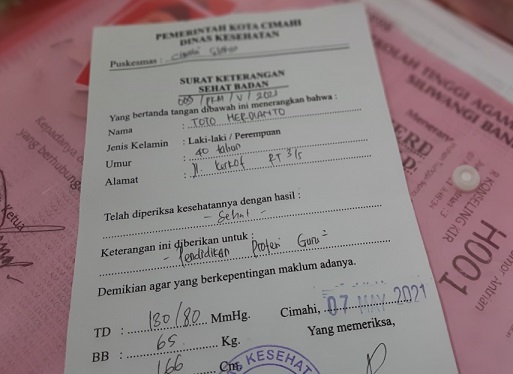 PEMERINTAH KOTA CIMAHI
DINAS KESEHATAN
Puskesmas :
SURAT KETERANGAN
SEHAT BADAN
/ V / 2021
Yang bertanda tangan dibawah ini menerangkan bahwa :
Nama : TOTO HERDIANTO
Jenis Kelamin : Laki-laki / Perempuan
Umur : 40 tahun
Alamat : Jl. Kerkof RT 3/5
Telah diperiksa kesehatannya dengan hasil :
- Sehat -
Keterangan ini diberikan untuk :
- Pendidikan Profesi Guru
Demikian agar yang berkepentingan maklum adanya.
Cimahi, 07 MAY 2021
TD : 130/80 MmHg.
Yang memeriksa,
BB : 65 Kg.
166 Cm
KESEHAT
Kepadanya d
yang berhubung
Ketua
KOLAH TINGGI AGAM
SILIWANGI BAN
Menerang
ERD
R KONSELING/KIR
H001
mor Antrian